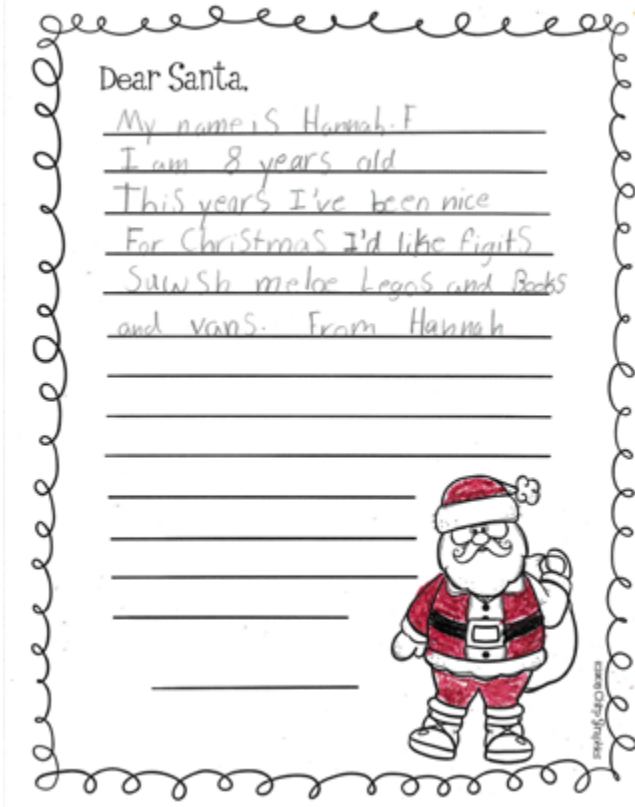 Dear Santa,
My name is Hannah. F
I am 8 years old
This years I've been nice
For Christmas I'd like figits
Suwsh meloe Legos and Books
and vans. From Hannah